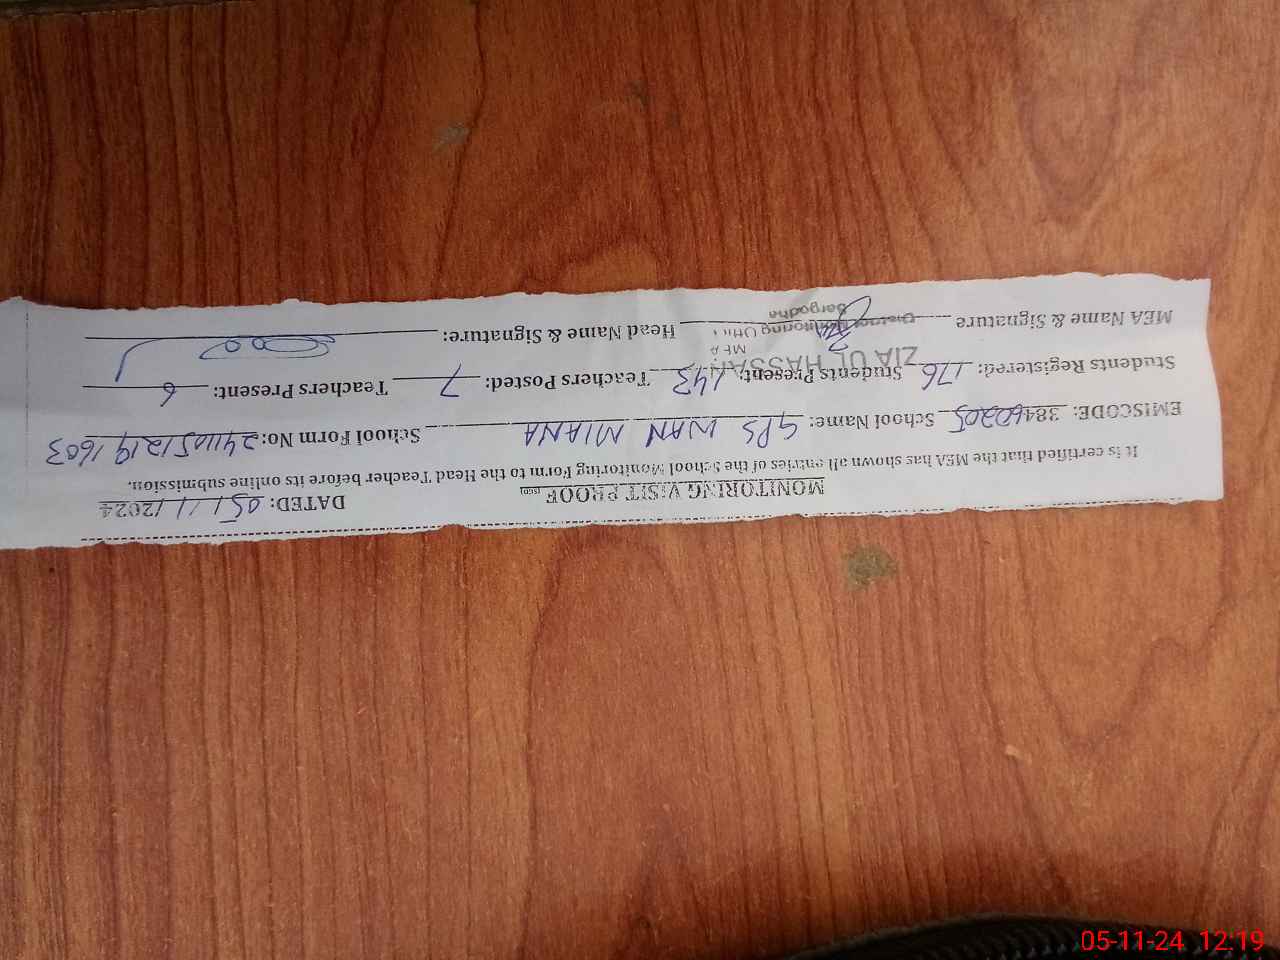 MONITORING VISIT PROOF [SED] DATED: 05/11/2024
It is certified that the MEA has shown all entries of the School Monitoring Form to the Head Teacher before its online submission.
EMISCODE: 38460205 School Name: GPS WAN MIANA School Form No: 24110512191603
Students Registered: 176 Students Present: 143 Teachers Posted: 7 Teachers Present: 6
ZIA UL HASSAN
MEA
MEA Name & Signature Head Name & Signature:
District Monitoring Office
Sargodha
05-11-24 12:19